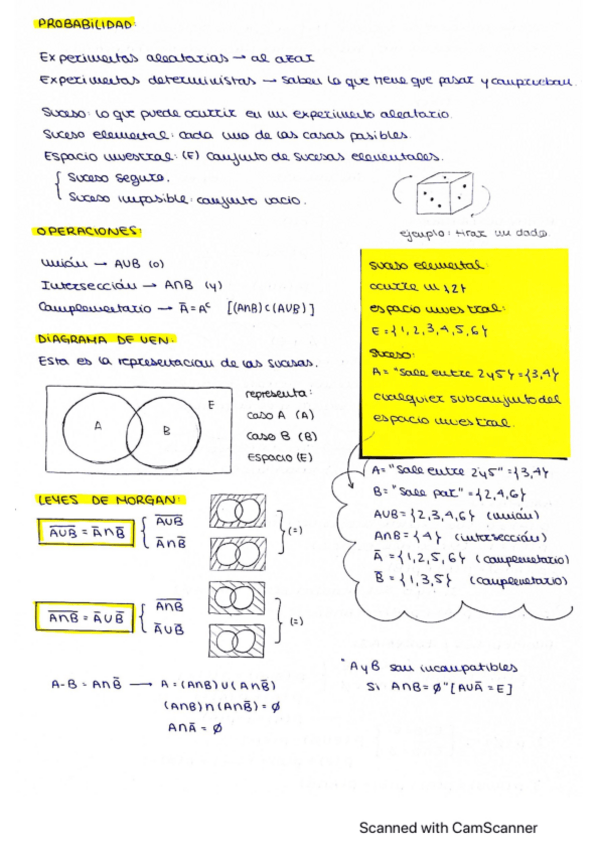 PROBABILIDAD:
Experimentos aleatorios → al azar
Experimentos deterministas → Saben lo que tiene que pasar y comprueban.
Suceso: lo que puede ocurrir en un experimento aleatorio.
Suceso elemental: cada uno de los casos posibles.
Espacio muestral: (E) Conjunto de sucesos elementales.
Suceso seguro.
Suceso imposible: conjunto vacío.
ejemplo: tirar un dado
OPERACIONES:
Unión → A∪B (o)
Intersección → A∩B (y)
Complementario → Ā = Aᶜ [(A∩B)⊂(A∪B)]
suceso elemental:
ocurre un {2}
espacio muestral:
E = {1, 2, 3, 4, 5, 6}
Suceso:
A = "Sale entre 2 y 5" = {3,4}
cualquier subconjunto del
espacio muestral.
DIAGRAMA DE VEN:
Esta es la representación de los sucesos.
A B E
representa:
caso A (A)
caso B (B)
Espacio (E)
A = "Sale entre 2 y 5" = {3,4}
B = "Sale par" = {2,4,6}
A∪B = {2,3,4,6} (unión)
A∩B = {4} (intersección)
Ā = {1,2,5,6} (complemetario)
B̅ = {1,3,5} (complemetario)
LEYES DE MORGAN:
A̅∪̅B̅ = Ā∩B̅
A̅∪̅B̅
Ā∩B̅
(=)
A̅∩̅B̅ = Ā∪B̅
A̅∩̅B̅
Ā∪B̅
(=)
A-B = A∩B̅ → A = (A∩B)∪(A∩B̅)
(A∩B)∩(A∩B̅) = ∅
A∩Ā = ∅
"A y B son incompatibles
Si A∩B = ∅" [A∪Ā = E]
Scanned with CamScanner